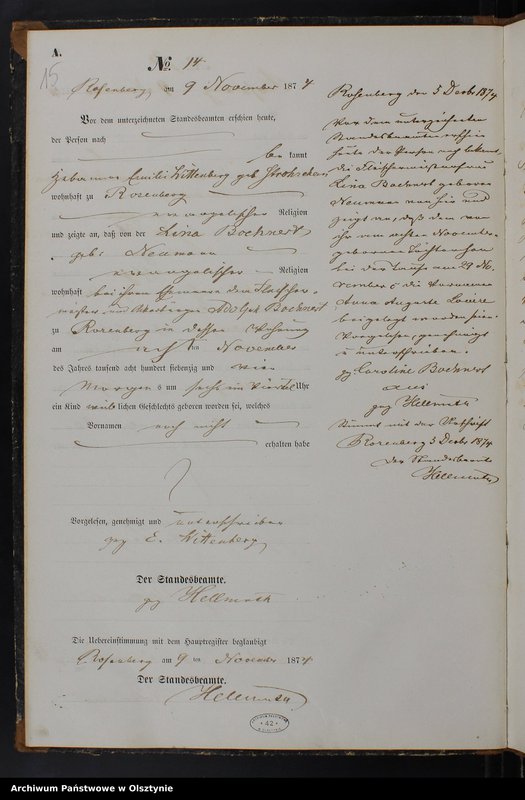 A.
15
No. 14
Rosenberg am 9 November 1874
Vor dem unterzeichneten Standesbeamten erschien heute,
der Person nach
be kannt
Hebamme Emilie Wittenberg geb
wohnhaft zu Rosenberg
evangelischer Religion
und zeigte an, daß von der Lina Bochnert
geb. Neumann
evangelischer Religion
wohnhaft bei ihrem Ehemann dem Fleischer-
meister Adolph Bochnert
zu Rosenberg in dessen Wohnung
am acht ten November
des Jahres tausend acht hundert siebenzig und vier
Morgens um sechs ein viertel Uhr
ein Kind weib lichen Geschlechts geboren worden sei, welches
Vornamen noch nicht
erhalten habe
Vorgelesen, genehmigt und unterschrieben
gez E. Wittenberg
Der Standesbeamte.
gez Hellmuth
Die Uebereinstimmung mit dem Hauptregister beglaubigt
Rosenberg am 9 ten November 1874
Der Standesbeamte.
Hellmuth
Rosenberg den 5 Decbr 1874
Vor dem unterzeichneten
Standesbeamten erschien
heute der Person nach bekannt
die Fleischermeisterfrau
Lina Bochnert geborene
Neumann von hier und
zeigt an, daß dem von
ihr am achten November
geborenen Töchterchen
bei der Taufe am 29 No-
vember c die Vornamen
Anna Auguste Louise
beigelegt worden sind.
Vorgelesen, genehmigt
u unterschrieben.
gez Caroline Bochnert
gez Hellmuth
Stimmt mit der Urschrift
Rosenberg 5 Decbr 1874
Der Standesbeamte
Hellmuth
42
Archiwum Państwowe w Olsztynie